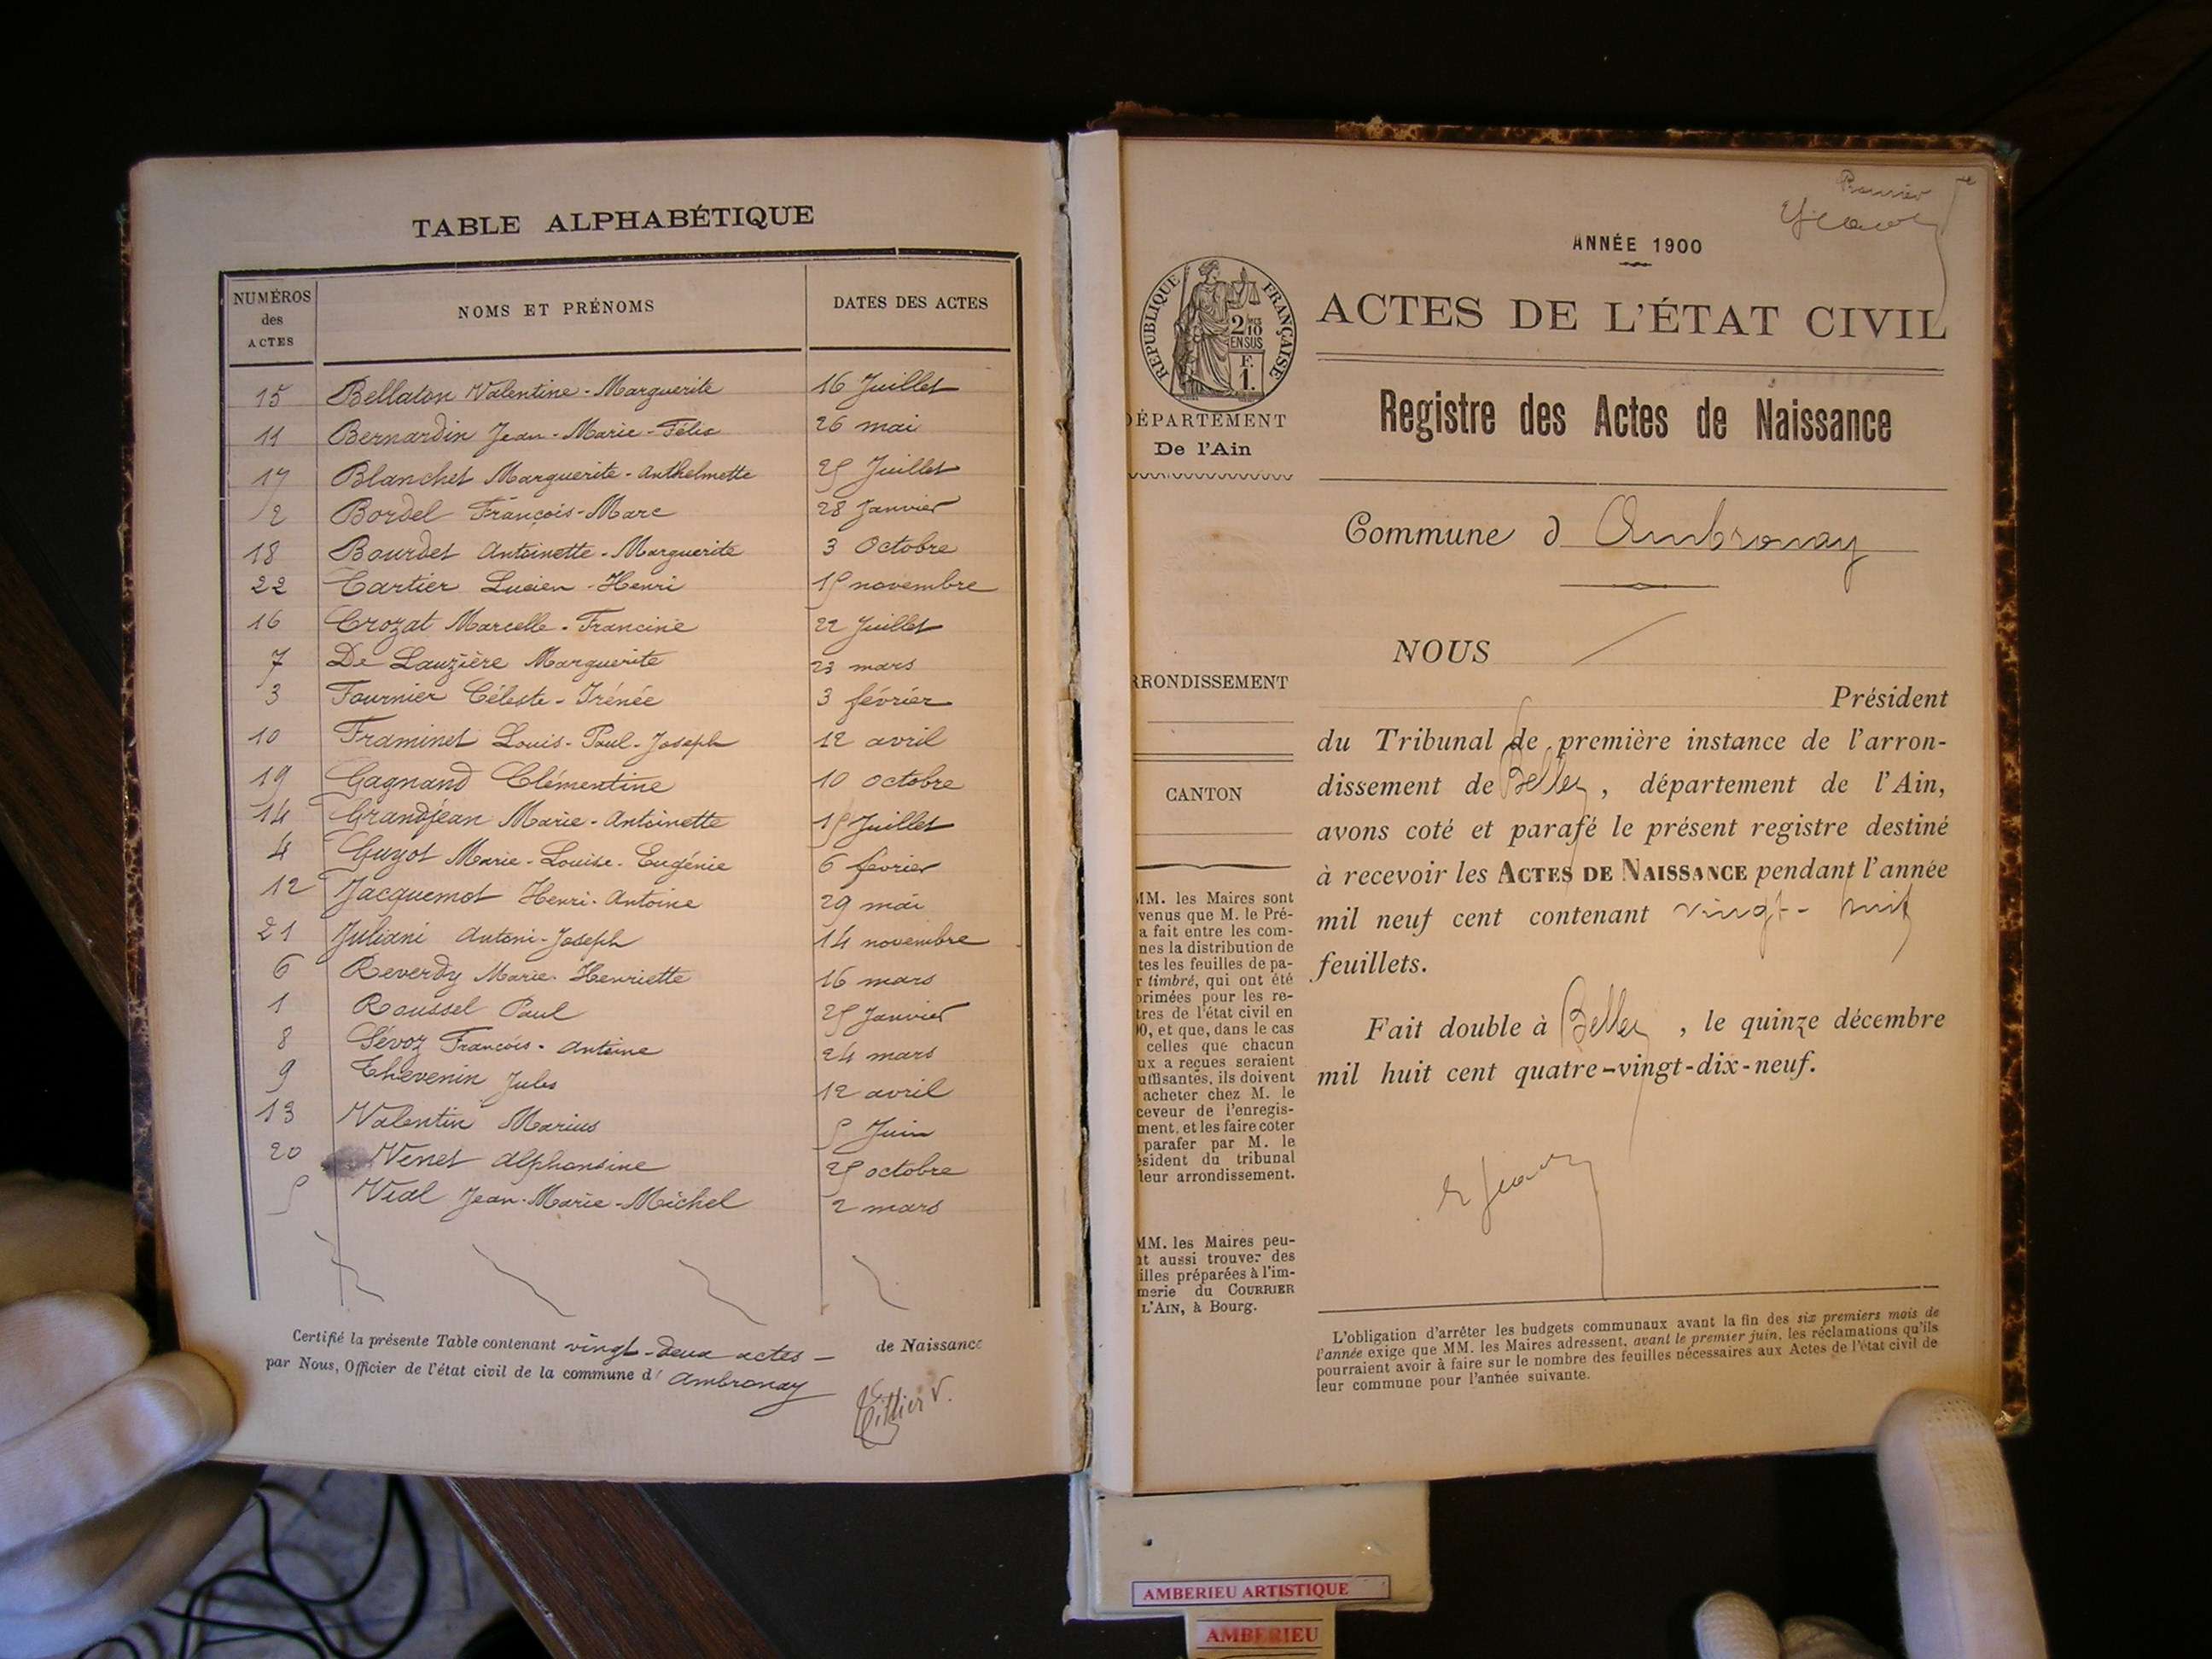 TABLE ALPHABÉTIQUE
NUMÉROS des ACTES
NOMS ET PRÉNOMS
DATES DES ACTES
15 Bellaton Valentine-Marguerite 16 Juillet
11 Bernardin Jean-Marie-Félix 26 mai
17 Blanchet Marguerite-Anthelmette 25 Juillet
2 Bordel François-Marc 28 Janvier
18 Bourdet Antoinette-Marguerite 3 Octobre
22 Cartier Lucien-Henri 15 novembre
16 Crozat Marcelle-Francine 22 Juillet
7 De Lauzière Marguerite 23 mars
3 Fournier Céleste-Irénée 3 février
10 Framinet Louis-Paul-Joseph 12 avril
19 Gagnand Clémentine 10 octobre
14 Grandjean Marie-Antoinette 15 Juillet
4 Guyot Marie-Louise-Eugénie 6 fevrier
12 Jacquemot Henri-Antoine 29 mai
21 Juliani Antoni-Joseph 14 novembre
6 Reverdy Marie-Henriette 16 mars
1 Roussel Paul 25 Janvier
8 Sévoz François-Antoine 24 mars
9 Thévenin Jules 12 avril
13 Valentin Marius 5 Juin
20 Venet Alphonsine 25 octobre
5 Vial Jean-Marie-Michel 2 mars
Certifié la présente Table contenant vingt-deux actes — de Naissance
par Nous, Officier de l'état civil de la commune d' Ambronay
Premier
ANNÉE 1900
RÉPUBLIQUE FRANÇAISE
2/10 EN SUS
F. 1.
ACTES DE L'ÉTAT CIVIL
DÉPARTEMENT
De l'Ain
Registre des Actes de Naissance
Commune d Ambronay
NOUS
RRONDISSEMENT
Président
du Tribunal de première instance de l'arron-
dissement de Belley, département de l'Ain,
CANTON
avons coté et parafé le présent registre destiné
à recevoir les ACTES DE NAISSANCE pendant l'année
mil neuf cent contenant vingt-huit
feuillets.
Fait double à Belley, le quinze décembre
mil huit cent quatre-vingt-dix-neuf.
MM. les Maires sont
venus que M. le Pré-
a fait entre les com-
nes la distribution de
tes les feuilles de pa-
r timbré, qui ont été
rimées pour les re-
tres de l'état civil en
0, et que, dans le cas
celles que chacun
ux a reçues seraient
uffisantes, ils doivent
acheter chez M. le
ceveur de l'enregis-
ment, et les faire coter
parafer par M. le
sident du tribunal
leur arrondissement.
MM. les Maires peu-
nt aussi trouver des
illes préparées à l'im-
merie du COURRIER
L'AIN, à Bourg.
L'obligation d'arrêter les budgets communaux avant la fin des six premiers mois de
l'année exige que MM. les Maires adressent, avant le premier juin, les réclamations qu'ils
pourraient avoir à faire sur le nombre des feuilles nécessaires aux Actes de l'état civil de
leur commune pour l'année suivante.
AMBERIEU ARTISTIQUE
AMBERIEU